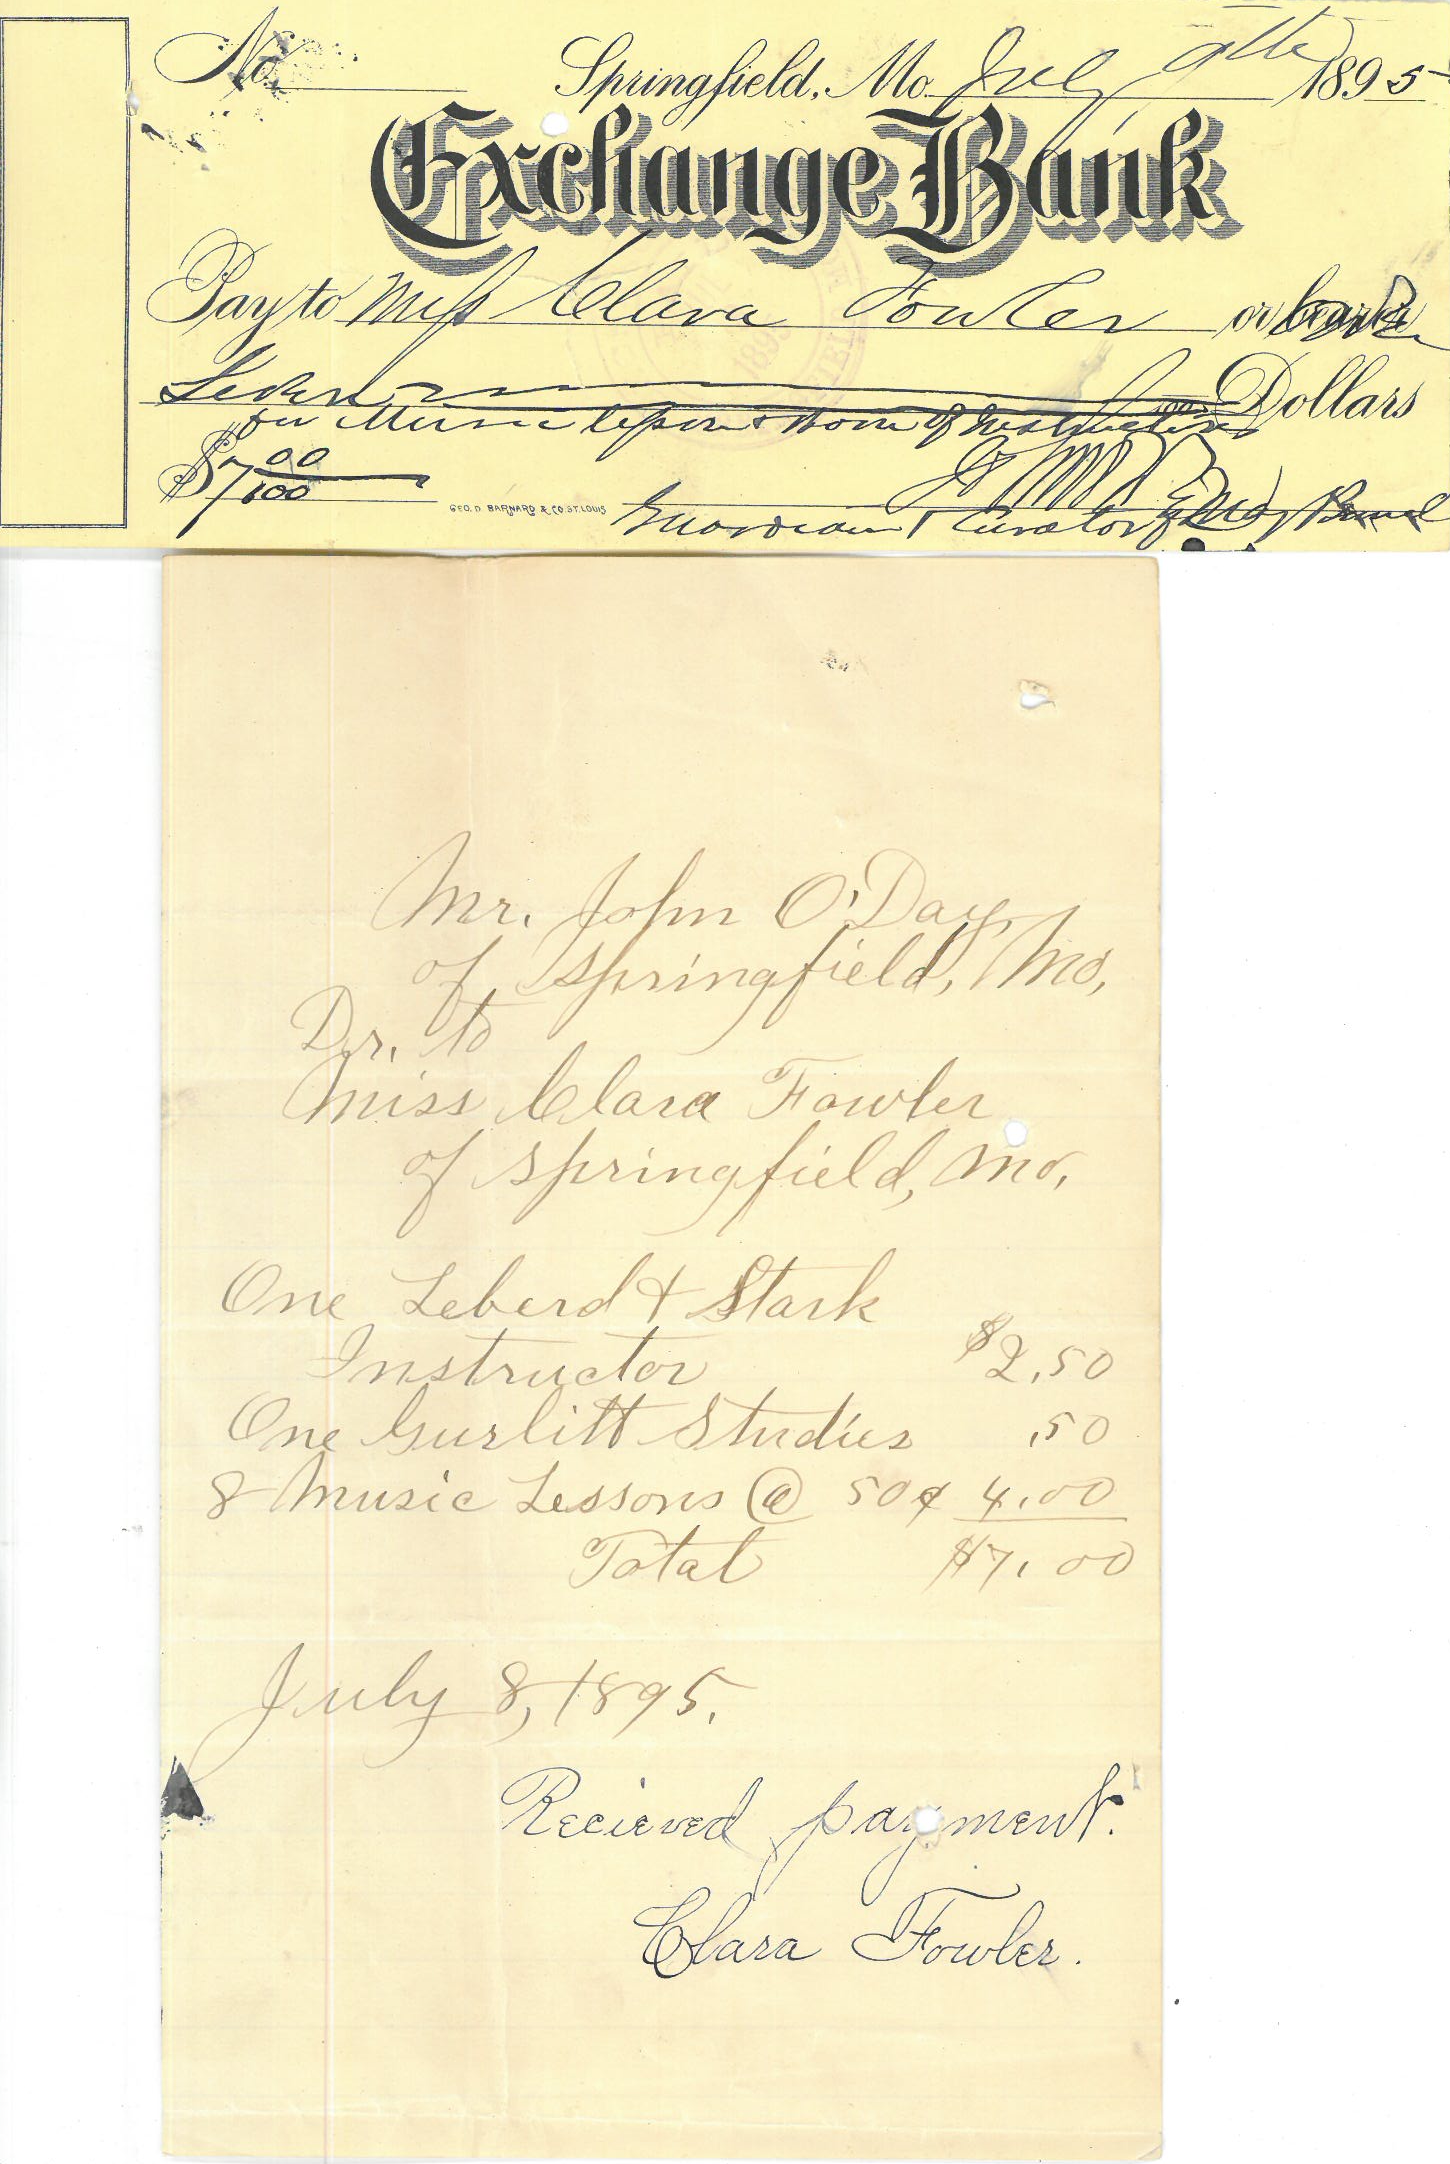 No
Springfield, Mo. July 9th 1895
Exchange Bank
Pay to Miss Clara Fowler or
Seven Dollars
for Music lessons & Book of Instructions
$7 00/100
GEO. D. BARNARD & CO. ST. LOUIS
Guardian & Curator of
Mr. John O'Day,
of Springfield, Mo,
Dr. to
Miss Clara Fowler
of Springfield, Mo,
One Leberd & Stark
Instructor $2.50
One Gurlitt Studies .50
8 Music Lessons @ 50¢ 4.00
Total $7.00
July 8, 1895.
Recieved payment.
Clara Fowler.